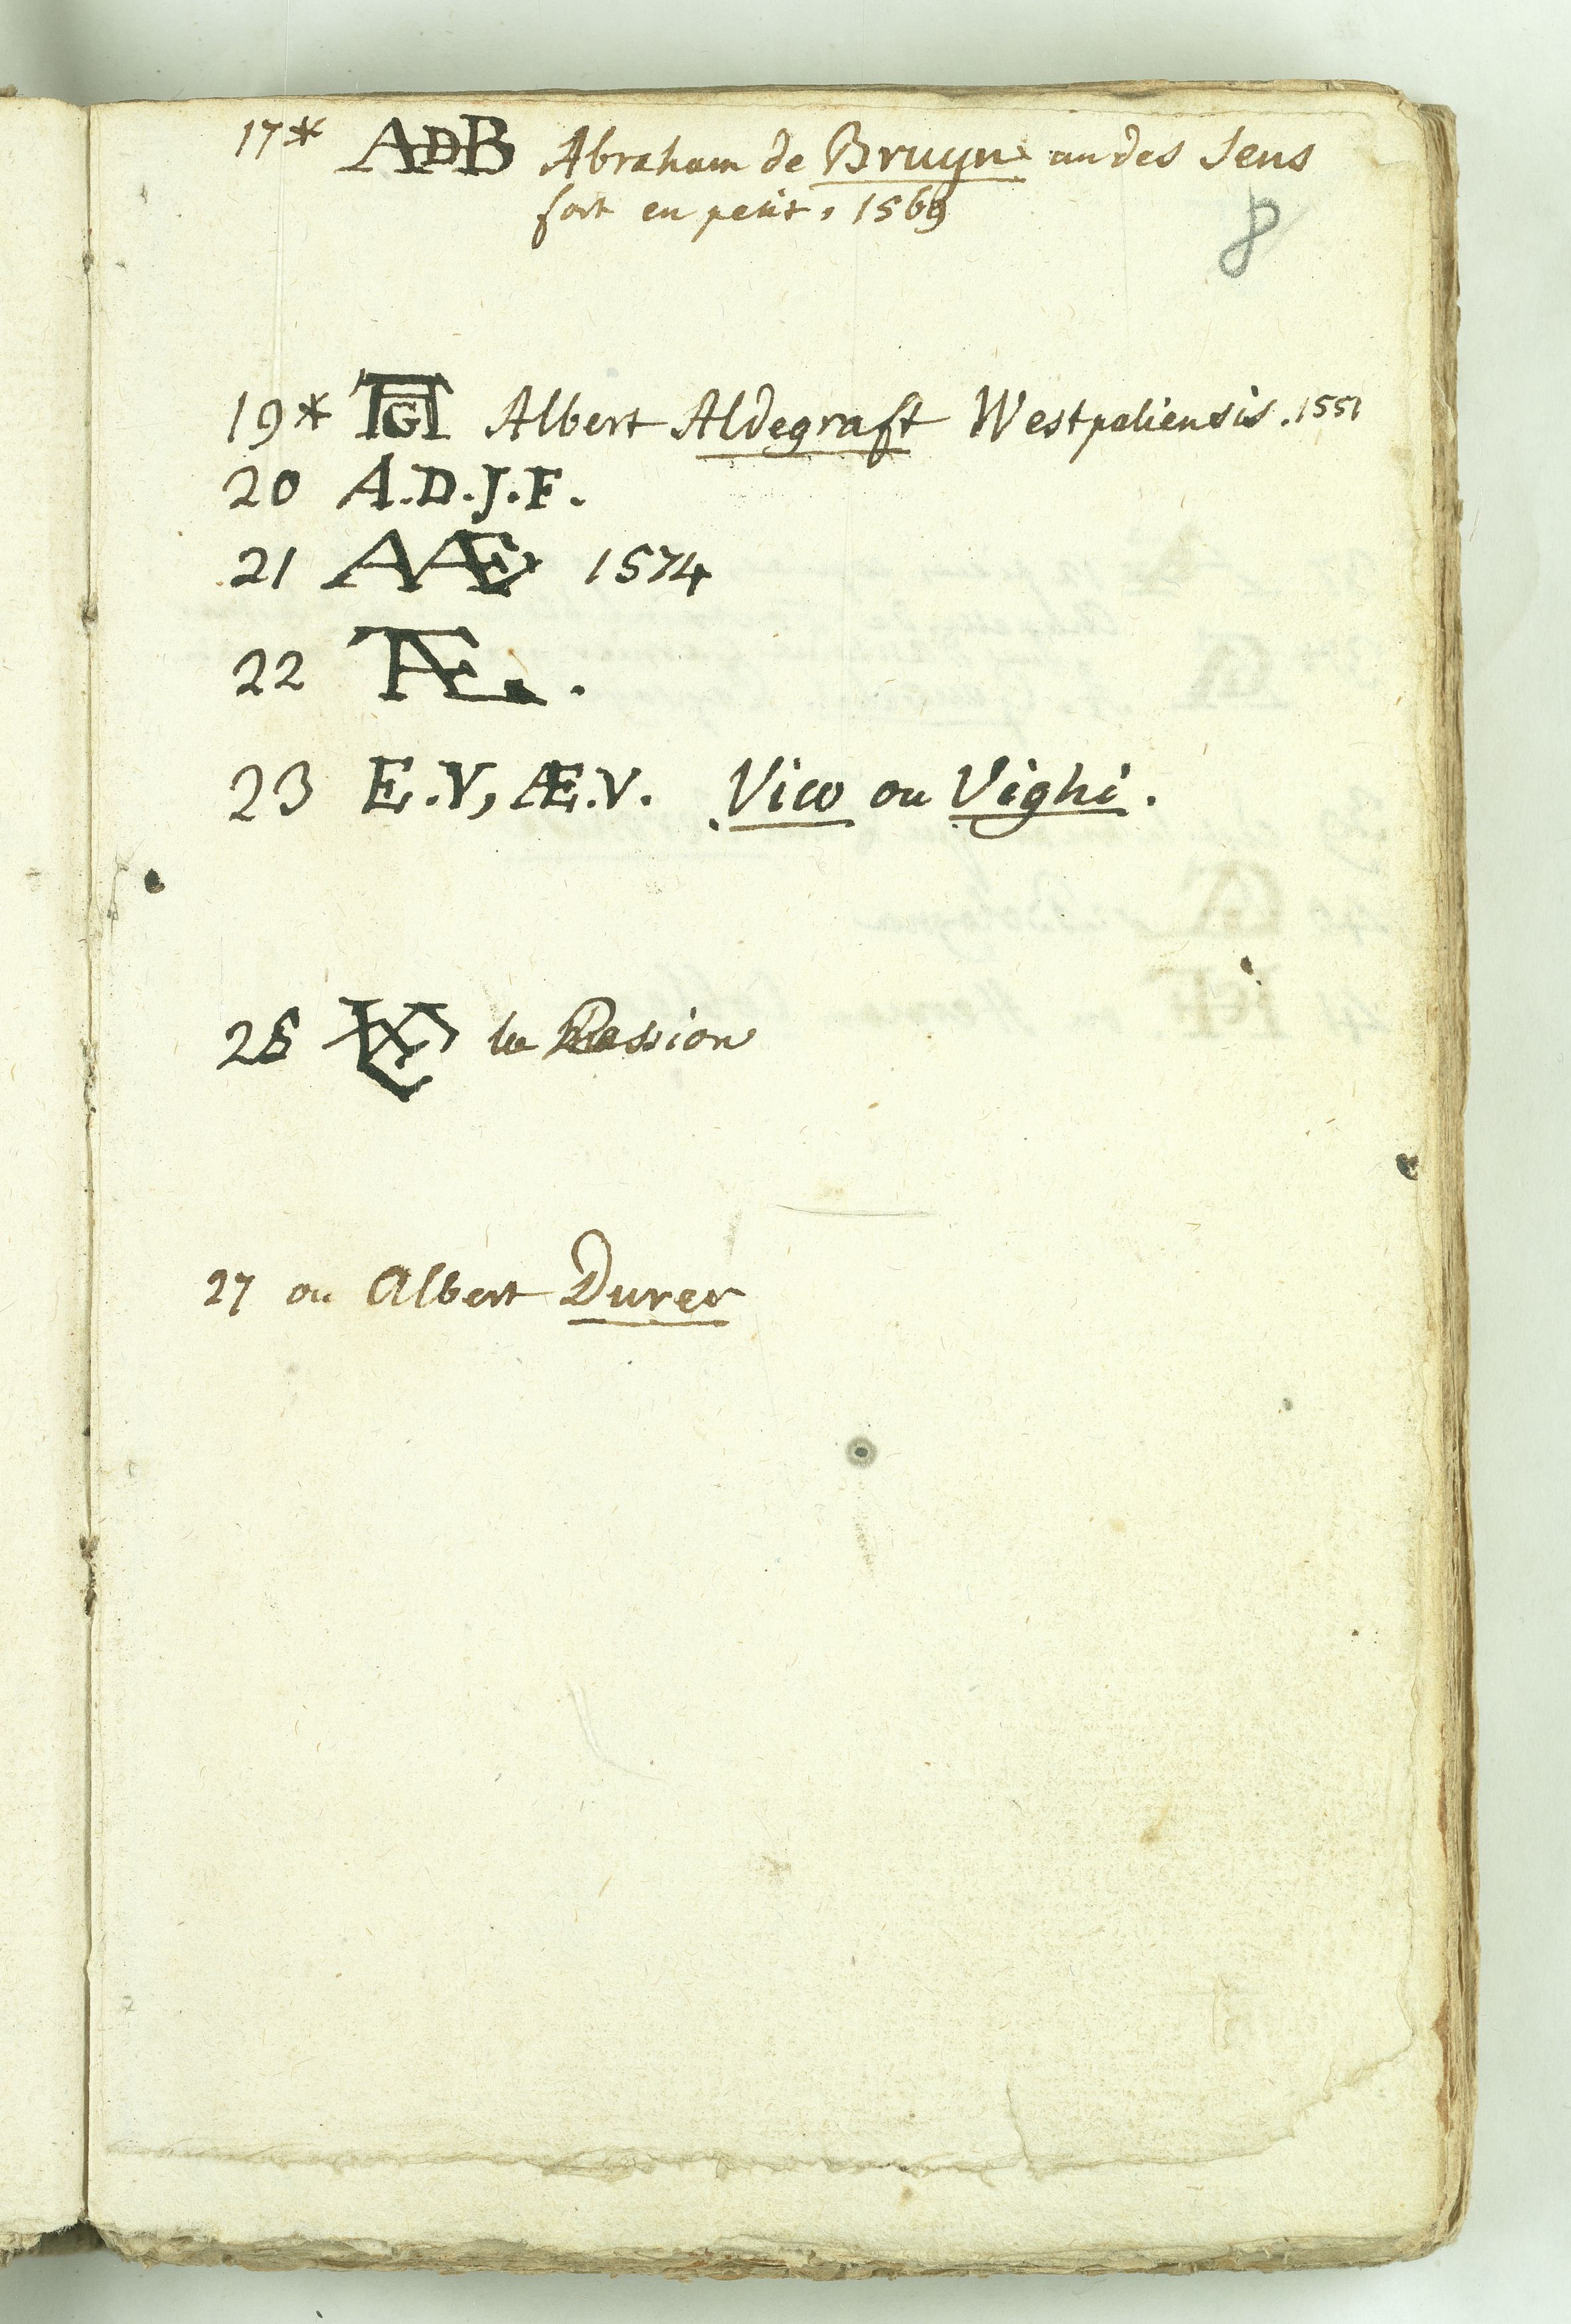 17* ADB Abraham de Bruyn un des Sens
fort en petit, 1569
8
19* AG Albert Aldegraft Westpaliensis. 1551
20 A.D.J.F.
21 AÆ 1574
22 Æ.
23 E.V, Æ.V. Vico ou Vighi.
28 la Passion
27 ou Albert Durer